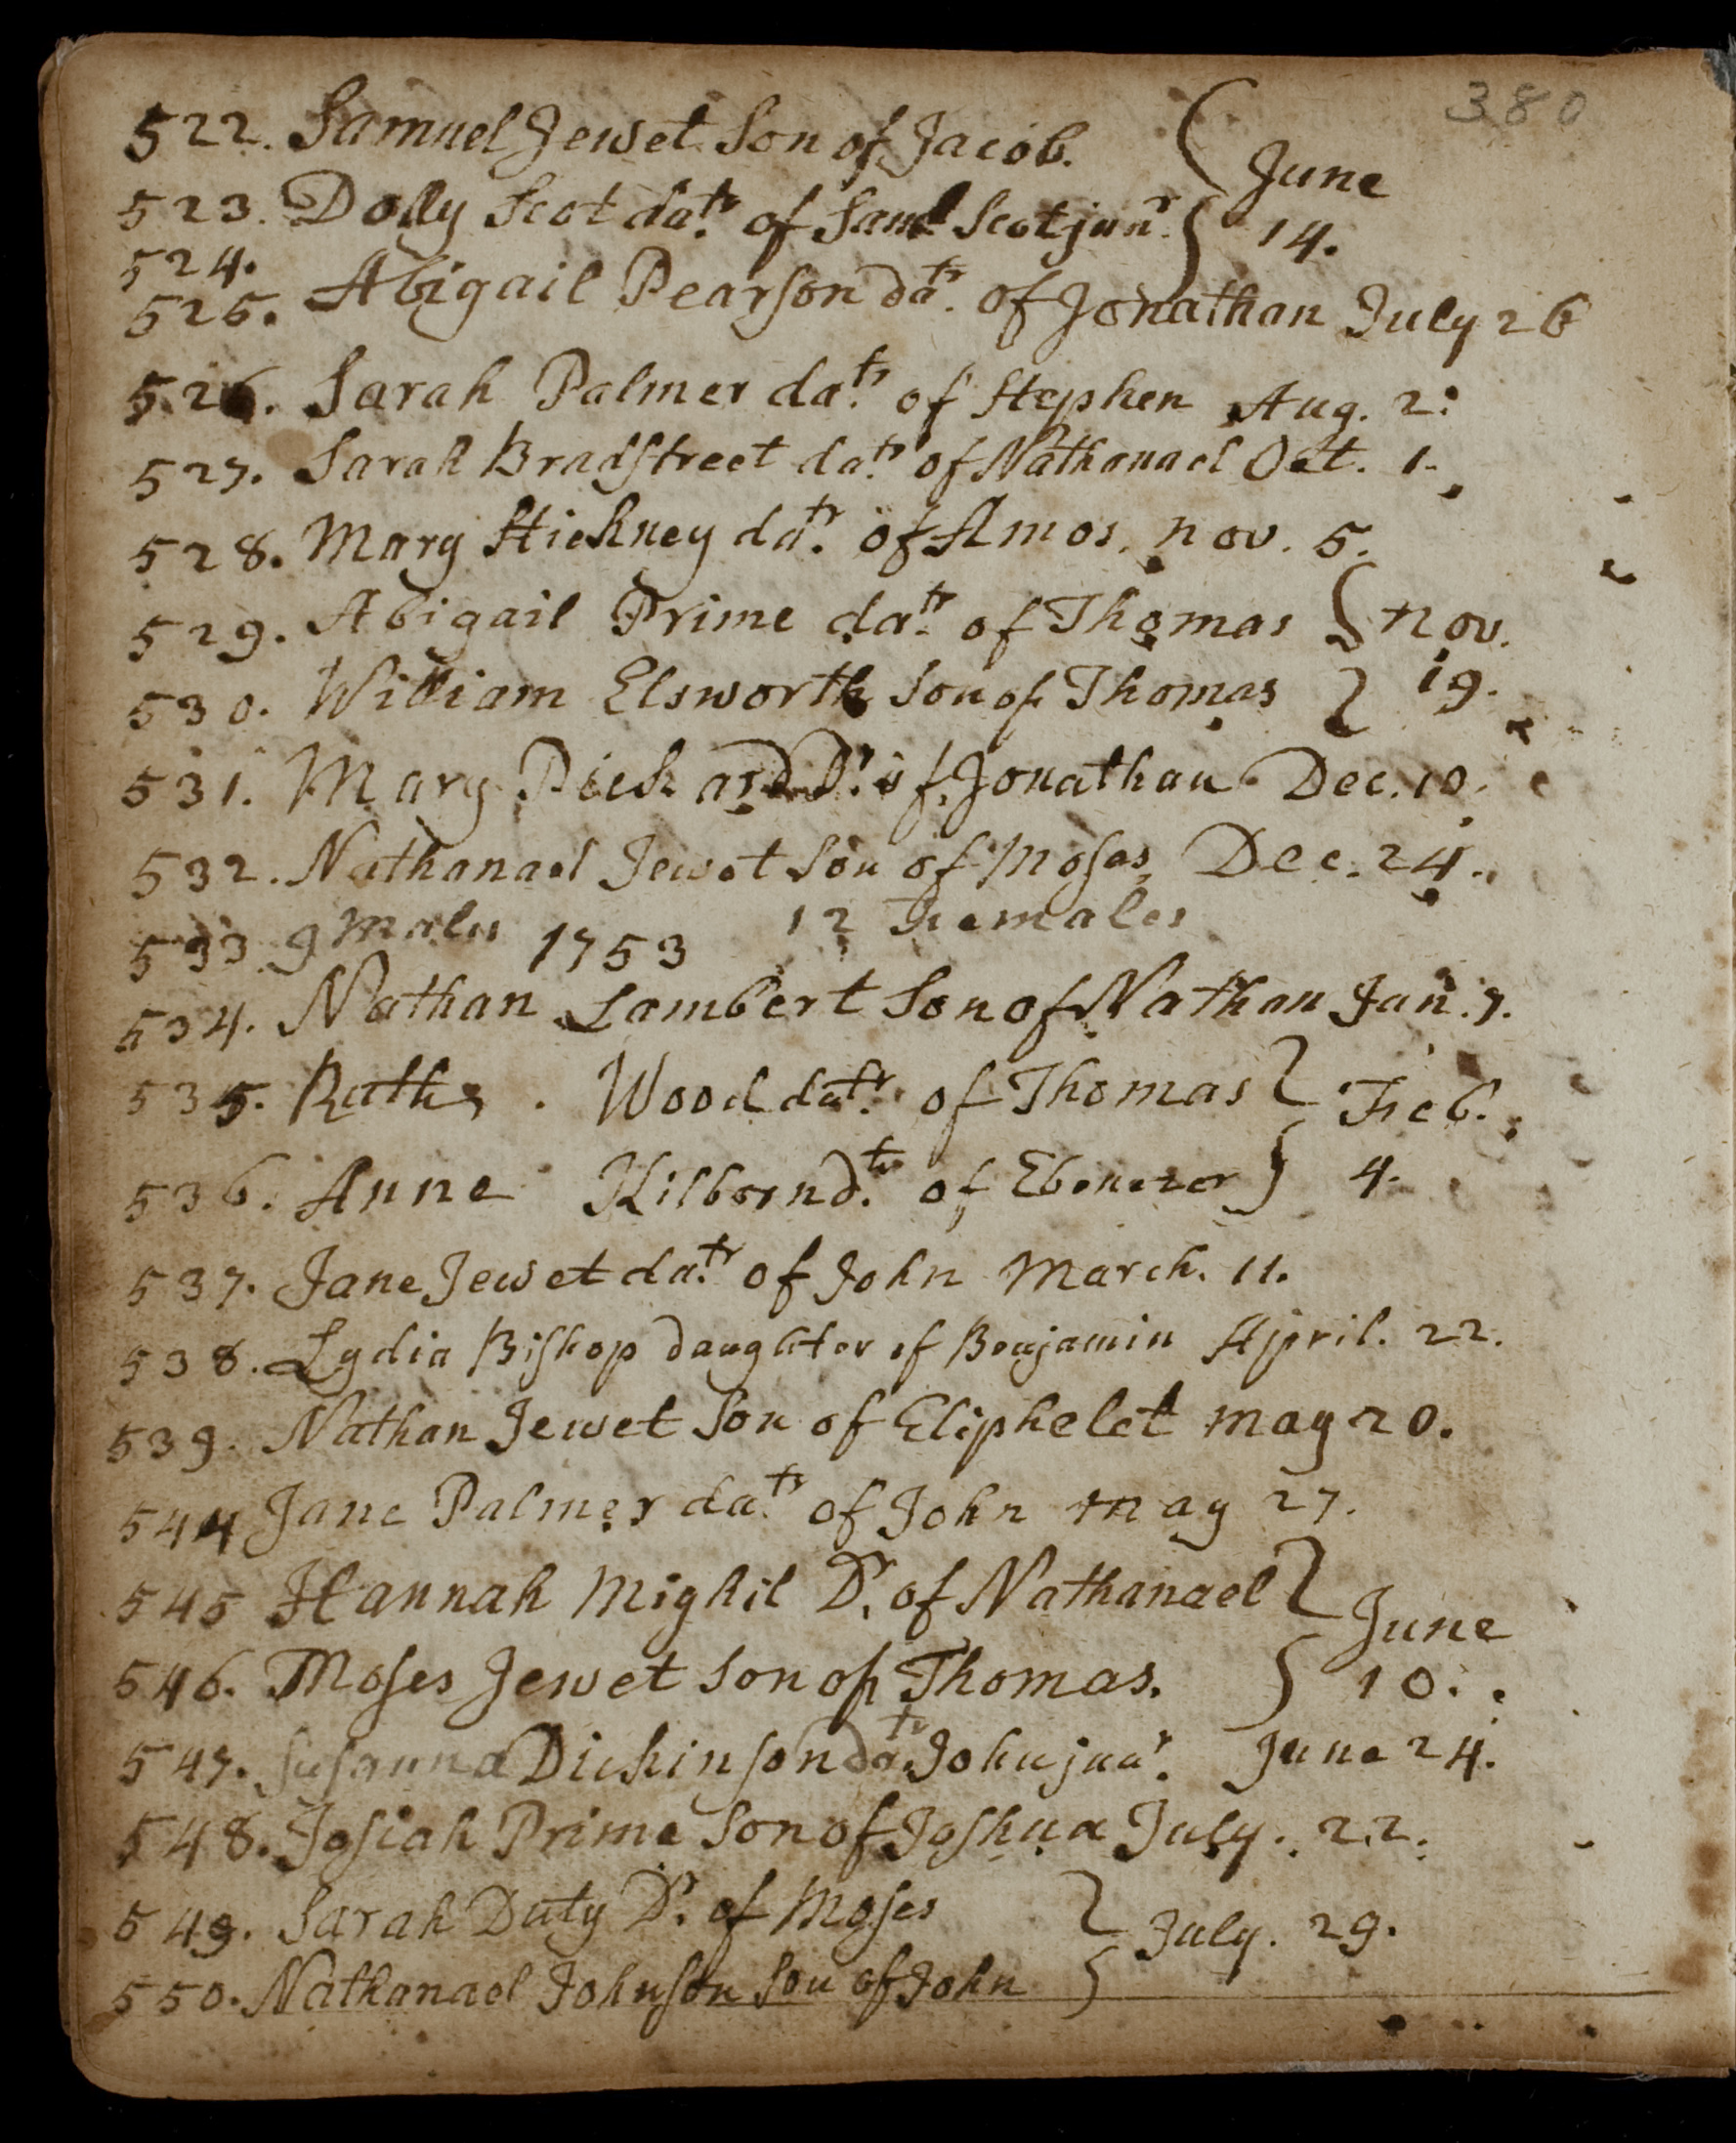 380
522. Samuel Jewet Son of Jacob. { June
523. Dolly Scot datr. of Saml Scot junr. } 14.
524.
525. Abigail Pearson datr. of Jonathan July 26
526. Sarah Palmer datr. of Stephen Aug. 2.
527. Sarah Bradstreet datr. of Nathanael Oct. 1.
528. Mary Stickney datr. of Amos. nov. 5.
529. Abigail Prime datr. of Thomas } nov.
530. William Elsworth Son of Thomas } 19.
531. Mary Pickard Dr. of Jonathan Dec. 10.
532. Nathanael Jewet Son of Moses, Dec. 24.
533. 9 males 1753 12 Females
534. Nathan Lambert Son of Nathan Jan. 7.
535. Ruth Wood datr. of Thomas } Feb.
536. Anne Kilborn dtr. of Ebenezer } 4.
537. Jane Jewet datr. of John March. 11.
538. Lydia Bishop daughter of Benjamin April. 22.
539. Nathan Jewet Son of Eliphelet may 20.
544 Jane Palmer datr. of John may 27.
545 Hannah Mighil Dr. of Nathanael } June
546. Moses Jewet Son of Thomas. } 10.
547. Susanna Dickinson datr. John junr. June 24.
548. Josiah Prime Son of Joshua July. 22.
549. Sarah Duty Dr. of Moses } July. 29.
550. Nathanael Johnson Son of John }